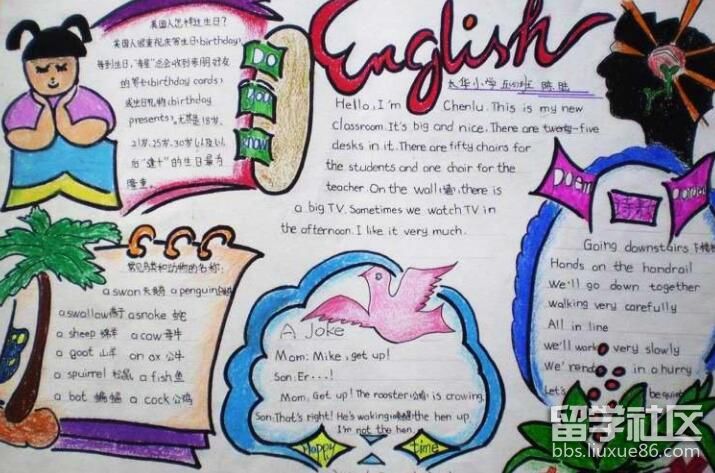 美国人怎样过生日?
美国人很重视庆贺生日(birthday),
等到生日,"寿星"总会收到亲朋好友
的贺卡(birthday cards)
或生日礼物(birthday
presents),尤其是18岁、
21岁、25岁、30岁以及以
后"逢十"的生日最为
隆重。
DO
YOU
know
English
大华小学
Hello, I'm Chenlu. This is my new
classroom. It's big and nice. There are twenty-five
desks in it. There are fifty chairs for
the students and one chair for the
teacher. On the wall(墙), there is
a big TV. Sometimes we watch TV in
the afternoon. I like it very much.
常见鸟类和动物的名称:
a swan 天鹅 a penguin
a swallow 燕子 a snake 蛇
a sheep 绵羊 a cow 母牛
a goat 山羊 an ox 公牛
a squirrel 松鼠 a fish 鱼
a bat 蝙蝠 a cock 公鸡
A Joke
Mom: Mike, get up!
Son: Er...!
Mom: Get up! The rooster(公鸡) is crowing.
Son: That's right! He's waking(唤醒) the hen up.
I'm not the hen.
Happy time
Poem
诗歌
Going downstairs 下楼梯
Hands on the handrail
We'll go down together
walking very carefully
All in line
we'll very slowly
We' in a hurry
Let's be quiet
留学社区
bbs.liuxue86.com